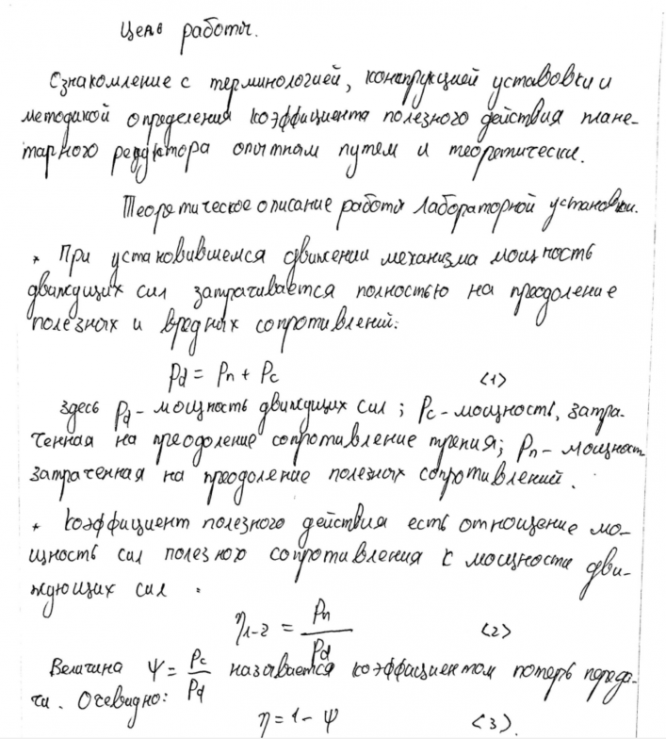 Цель работы.
Ознакомление с терминологией, конструкцией установки и
методикой определения коэффициента полезного действия плане-
тарного редуктора опытным путем и теоретически.
Теоретическое описание работы лабораторной установки.
* При установившемся движении механизма мощность
движущих сил затрачивается полностью на преодоление
полезных и вредных сопротивлений:
Pd = Pп + Pc <1>
здесь Pd - мощность движущих сил; Pc - мощность, затра-
ченная на преодоление сопротивление трения; Pп - мощност
затраченная на преодоление полезных сопротивлений.
* Коэффициент полезного действия есть отношение мо-
щность сил полезного сопротивления к мощности дви-
ждующих сил .
η1-2 = Pп / Pd <2>
Величина Ψ = Pc / Pd называется коэффициентом потерь переда-
чи. Очевидно:
η = 1 - Ψ <3>.